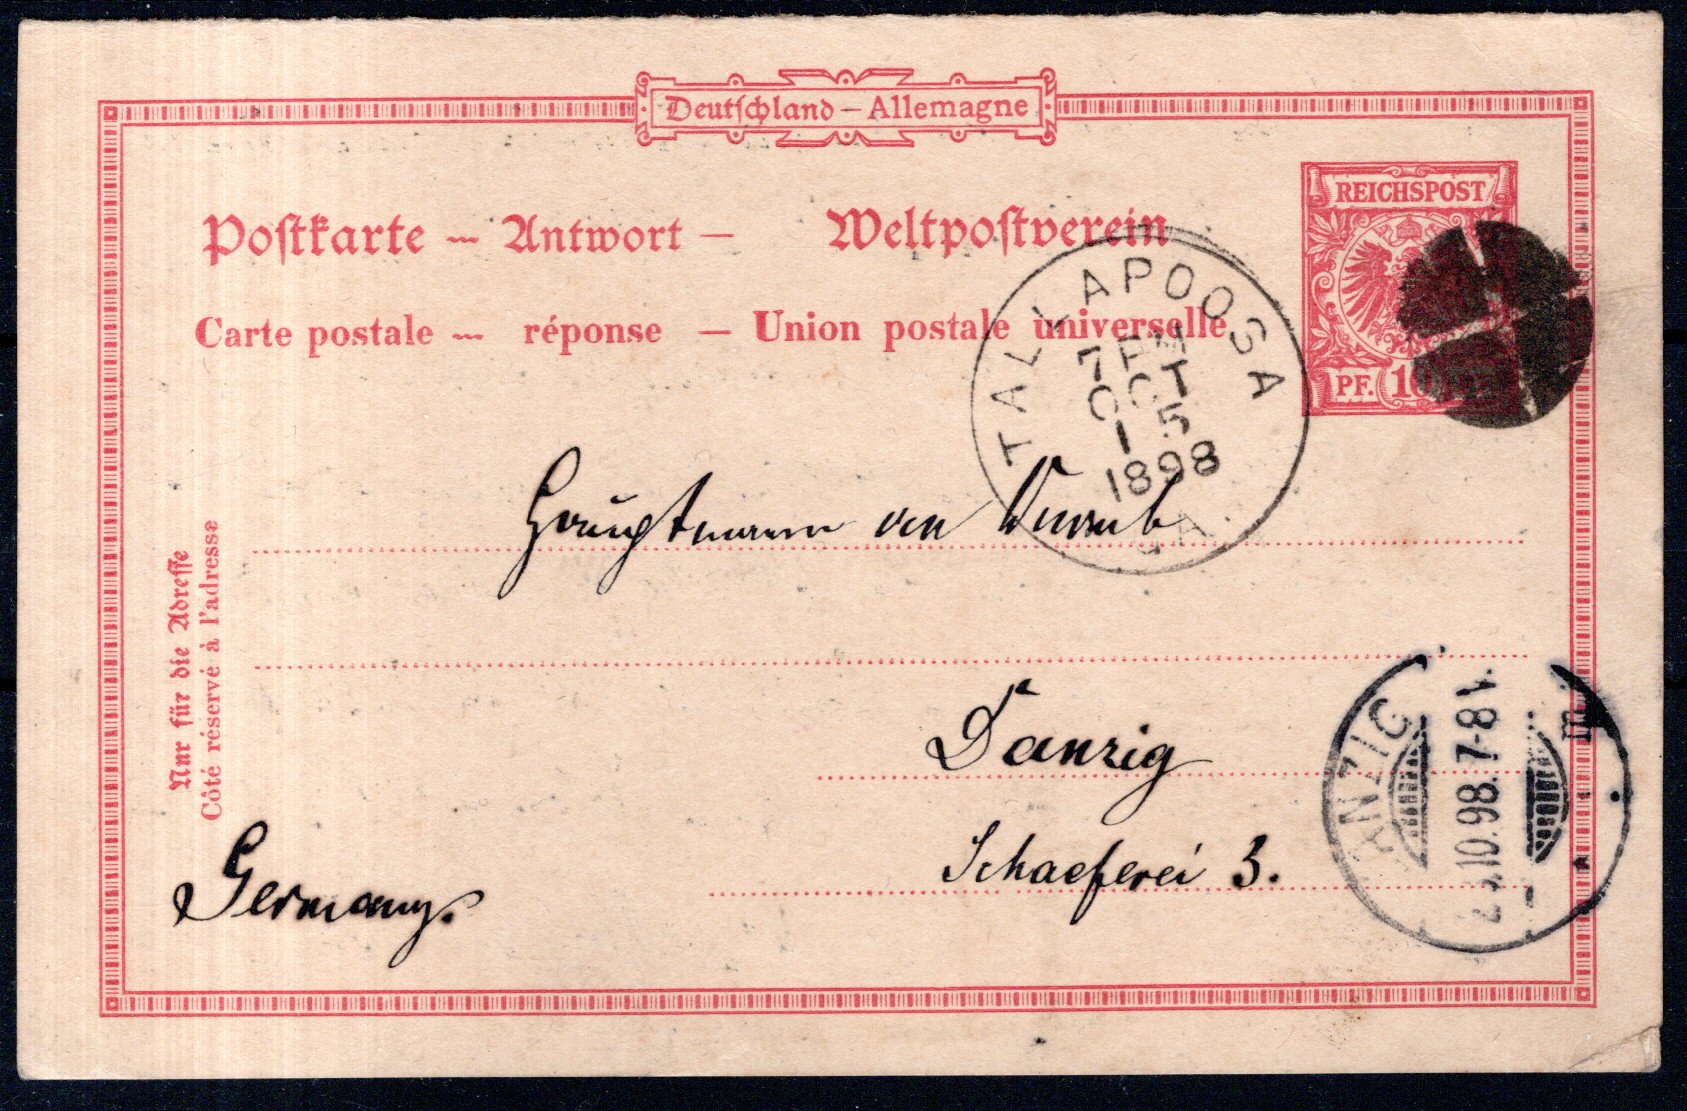 Deutschland – Allemagne
Postkarte — Antwort — Weltpostverein
Carte postale — réponse — Union postale universelle
REICHSPOST
PF. 10
TALLAPOOSA
7 PM
OCT
15
1898
GA.
Hauptmann von
Danzig
Schaeferei 3.
Germany.
Nur für die Adresse
Côté réservé à l'adresse
DANZIG
10.98.7-8V.